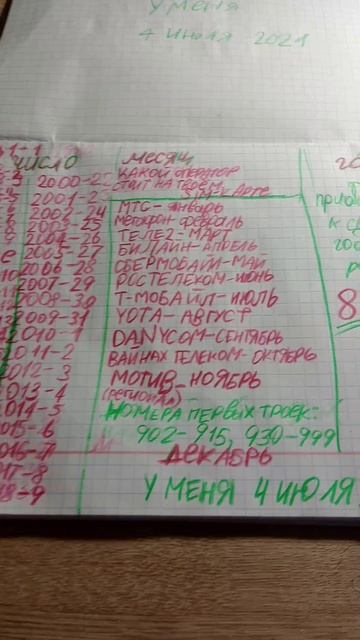 У МЕНЯ
4 ИЮЛЯ 2021
ЧИСЛО
2000-2
2001-2
2002-24
2003-25
2004-26
2005-27
2006-28
2007-29
2008-30
2009-31
2010-1
2011-2
2012-3
2013-4
2014-5
2015-6
2016-7
17-8
18-9
МЕСЯЦ
КАКОЙ ОПЕРАТОР
СТОИТ НА ТВОЕЙ
SIM-КАРТЕ
МТС-ЯНВАРЬ
МЕГАФОН-ФЕВРАЛЬ
ТЕЛЕ2-МАРТ
БИЛАЙН-АПРЕЛЬ
СБЕРМОБАЙЛ-МАЙ
РОСТЕЛЕКОМ-ИЮНЬ
Т-МОБАИЛ-ИЮЛЬ
YOTA-АВГУСТ
DANYCOM-СЕНТЯБРЬ
ВАЙНАХ ТЕЛЕКОМ-ОКТЯБРЬ
МОТИВ-НОЯБРЬ
(РЕГИОНАЛ)
НОМЕРА ПЕРВЫХ ТРОЕК:
902-915, 930-999
ДЕКАБРЬ
У МЕНЯ 4 ИЮЛЯ
8